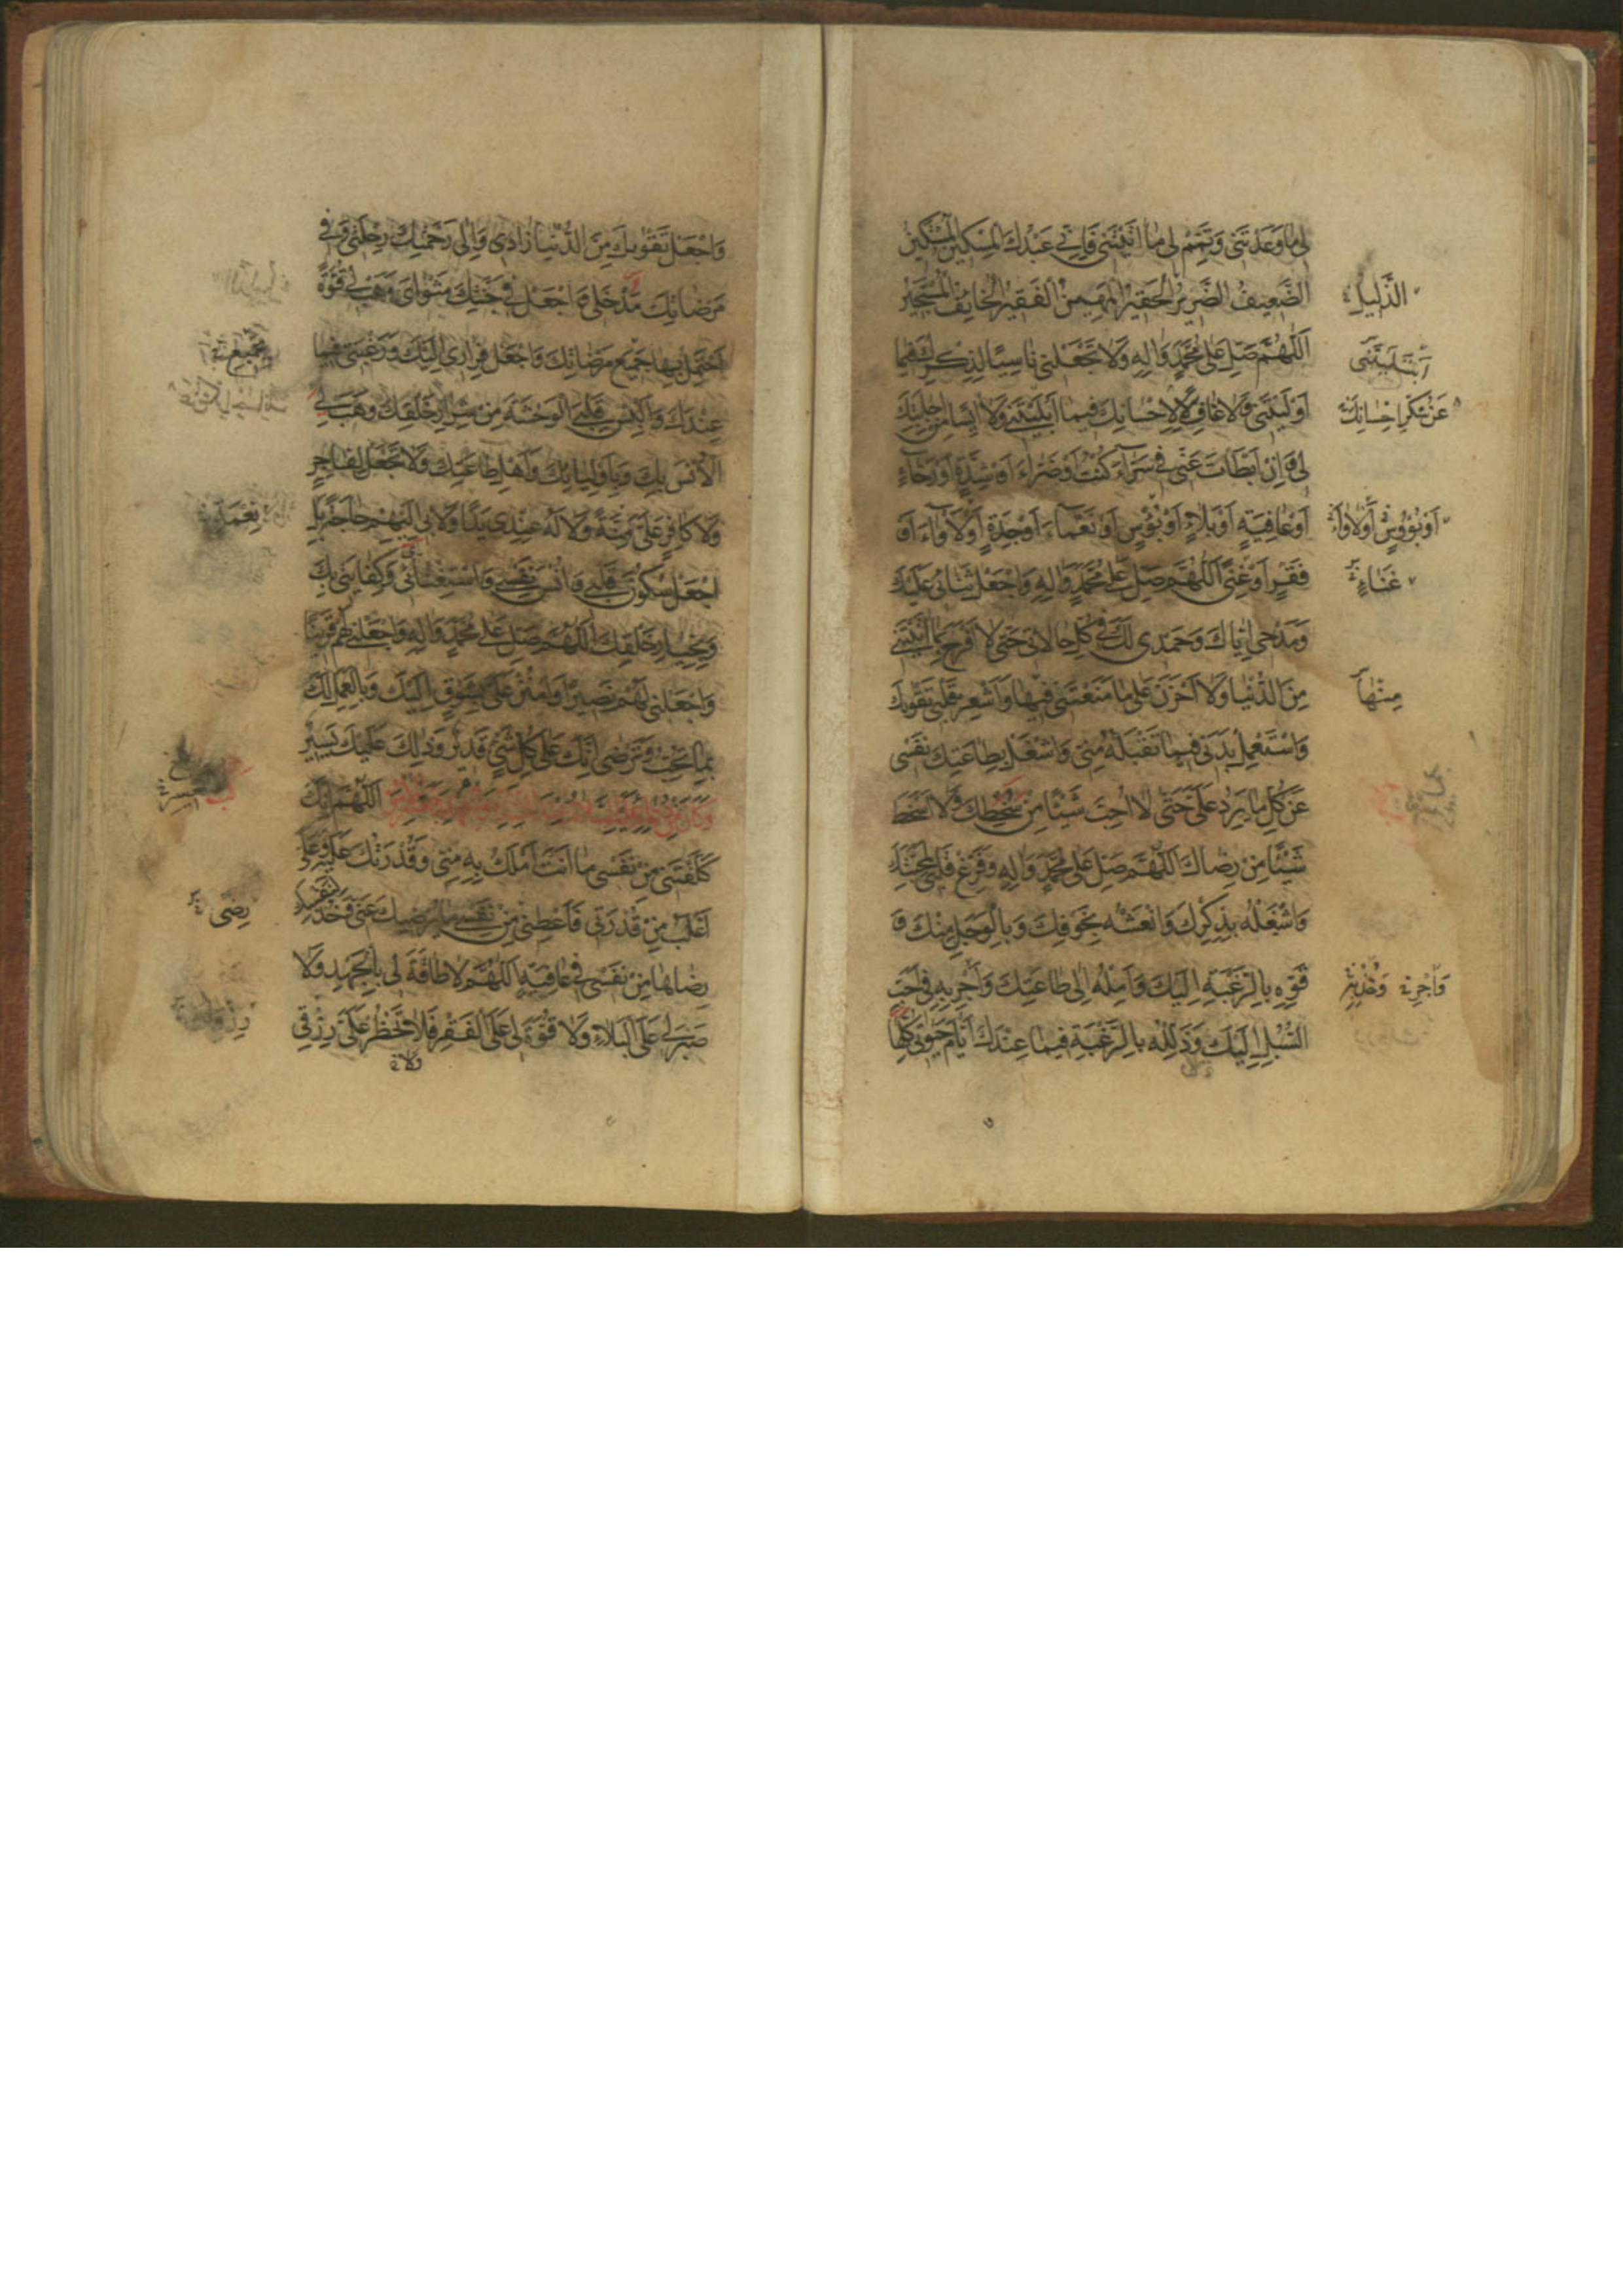 لِي مَا وَعَدْتَنِي وَتَمِّمْ لِي مَا آتَيْتَنِي فَإِنِّي عَبْدُكَ الْمِسْكِينُ الْمُسْتَكِينُ
الضَّعِيفُ الضَّرِيرُ الْحَقِيرُ الْمَهِينُ الْفَقِيرُ الْخَائِفُ الْمُسْتَجِيرُ
الذَّلِيلُ
اَللّٰهُمَّ صَلِّ عَلٰى مُحَمَّدٍ وَاٰلِهِ وَلَا تَجْعَلْنِي نَاسِيًا لِذِكْرِكَ فِيمَا
ابْتَلَيْتَنِي
أَوْلَيْتَنِي وَلَا غَافِلًا لِإِحْسَانِكَ فِيمَا أَبْلَيْتَنِي وَلَا آيِسًا مِنْ إِجَابَتِكَ
عَنْ شُكْرِ إِحْسَانِكَ
لِي وَإِنْ أَبْطَأَتْ عَنِّي فِي سَرَّاءَ كُنْتُ أَوْ ضَرَّاءَ أَوْ شِدَّةٍ أَوْ رَخَاءٍ
أَوْ عَافِيَةٍ أَوْ بَلَاءٍ أَوْ بُؤْسٍ أَوْ نَعْمَاءَ أَوْ جِدَةٍ أَوْ لَأْوَاءَ أَوْ
فَقْرٍ أَوْ غِنًى اَللّٰهُمَّ صَلِّ عَلٰى مُحَمَّدٍ وَاٰلِهِ وَاجْعَلْ ثَنَائِي عَلَيْكَ
غَنَاءٍ
وَمَدْحِي إِيَّاكَ وَحَمْدِي لَكَ فِي كُلِّ حَالَاتِي حَتَّى لَا أَفْرَحَ بِمَا آتَيْتَنِي
مِنَ الدُّنْيَا وَلَا أَحْزَنَ عَلٰى مَا مَنَعْتَنِي فِيهَا وَأَشْعِرْ قَلْبِي تَقْوٰيكَ
مِنْهَا
وَاسْتَعْمِلْ بَدَنِي فِيمَا تَقْبَلُهُ مِنِّي وَاشْغَلْ بِطَاعَتِكَ نَفْسِي
عَنْ كُلِّ مَا يَرِدُ عَلَيَّ حَتَّى لَا أُحِبَّ شَيْئًا مِنْ سُخْطِكَ وَلَا أَسْخَطَ
شَيْئًا مِنْ رِضَاكَ اَللّٰهُمَّ صَلِّ عَلٰى مُحَمَّدٍ وَاٰلِهِ وَفَرِّغْ قَلْبِي لِمَحَبَّتِكَ
وَاشْغَلْهُ بِذِكْرِكَ وَانْعَشْهُ بِخَوْفِكَ وَبِالْوَجَلِ مِنْكَ وَ
قَوِّهِ بِالرَّغْبَةِ إِلَيْكَ وَأَمِلْهُ إِلٰى طَاعَتِكَ وَأَجْرِ بِهِ فِي أَحَبِّ
السُّبُلِ إِلَيْكَ وَذَلِّلْهُ بِالرَّغْبَةِ فِيمَا عِنْدَكَ أَيَّامَ حَيٰوتِي كُلِّهَا
وَاجْعَلْ تَقْوٰيكَ مِنَ الدُّنْيَا زَادِي وَإِلٰى رَحْمَتِكَ رِحْلَتِي وَفِي
مَرْضَاتِكَ مَدْخَلِي وَاجْعَلْ فِي جَنَّتِكَ مَثْوَايَ وَهَبْ لِي قُوَّةً
أَحْتَمِلُ بِهَا جَمِيعَ مَرْضَاتِكَ وَاجْعَلْ فِرَارِي إِلَيْكَ وَرَغْبَتِي فِيمَا
عِنْدَكَ وَأَلْبِسْ قَلْبِيَ الْوَحْشَةَ مِنْ شِرَارِ خَلْقِكَ وَهَبْ لِيَ
الْأُنْسَ بِكَ وَبِأَوْلِيَائِكَ وَأَهْلِ طَاعَتِكَ وَلَا تَجْعَلْ لِفَاجِرٍ
وَلَا كَافِرٍ عَلَيَّ مِنَّةً وَلَا لَهُ عِنْدِي يَدًا وَلَا بِي إِلَيْهِمْ حَاجَةً بَلِ
اجْعَلْ سُكُونَ قَلْبِي وَأُنْسَ نَفْسِي وَاسْتِغْنَائِي وَكِفَايَتِي بِكَ
وَبِخِيَارِ خَلْقِكَ اَللّٰهُمَّ صَلِّ عَلٰى مُحَمَّدٍ وَاٰلِهِ وَاجْعَلْنِي لَهُمْ قَرِينًا
وَاجْعَلْنِي لَهُمْ نَصِيرًا وَامْنُنْ عَلَيَّ بِشَوْقٍ إِلَيْكَ وَبِالْعَمَلِ لَكَ
بِمَا تُحِبُّ وَتَرْضٰى إِنَّكَ عَلٰى كُلِّ شَيْءٍ قَدِيرٌ وَذٰلِكَ عَلَيْكَ يَسِيرٌ
اَللّٰهُمَّ إِنَّكَ
كَلَّفْتَنِي مِنْ نَفْسِي مَا أَنْتَ أَمْلَكُ بِهِ مِنِّي وَقُدْرَتُكَ عَلَيْهِ وَعَلَيَّ
أَغْلَبُ مِنْ قُدْرَتِي فَأَعْطِنِي مِنْ نَفْسِي مَا يُرْضِيكَ عَنِّي وَخُذْ لِنَفْسِكَ
رِضًى
رِضَاهَا مِنْ نَفْسِي فِي عَافِيَةٍ اَللّٰهُمَّ لَا طَاقَةَ لِي بِالْجَهْدِ وَلَا
صَبْرَ لِي عَلَى الْبَلَاءِ وَلَا قُوَّةَ لِي عَلَى الْفَقْرِ فَلَا تَحْظُرْ عَلَيَّ رِزْقِي